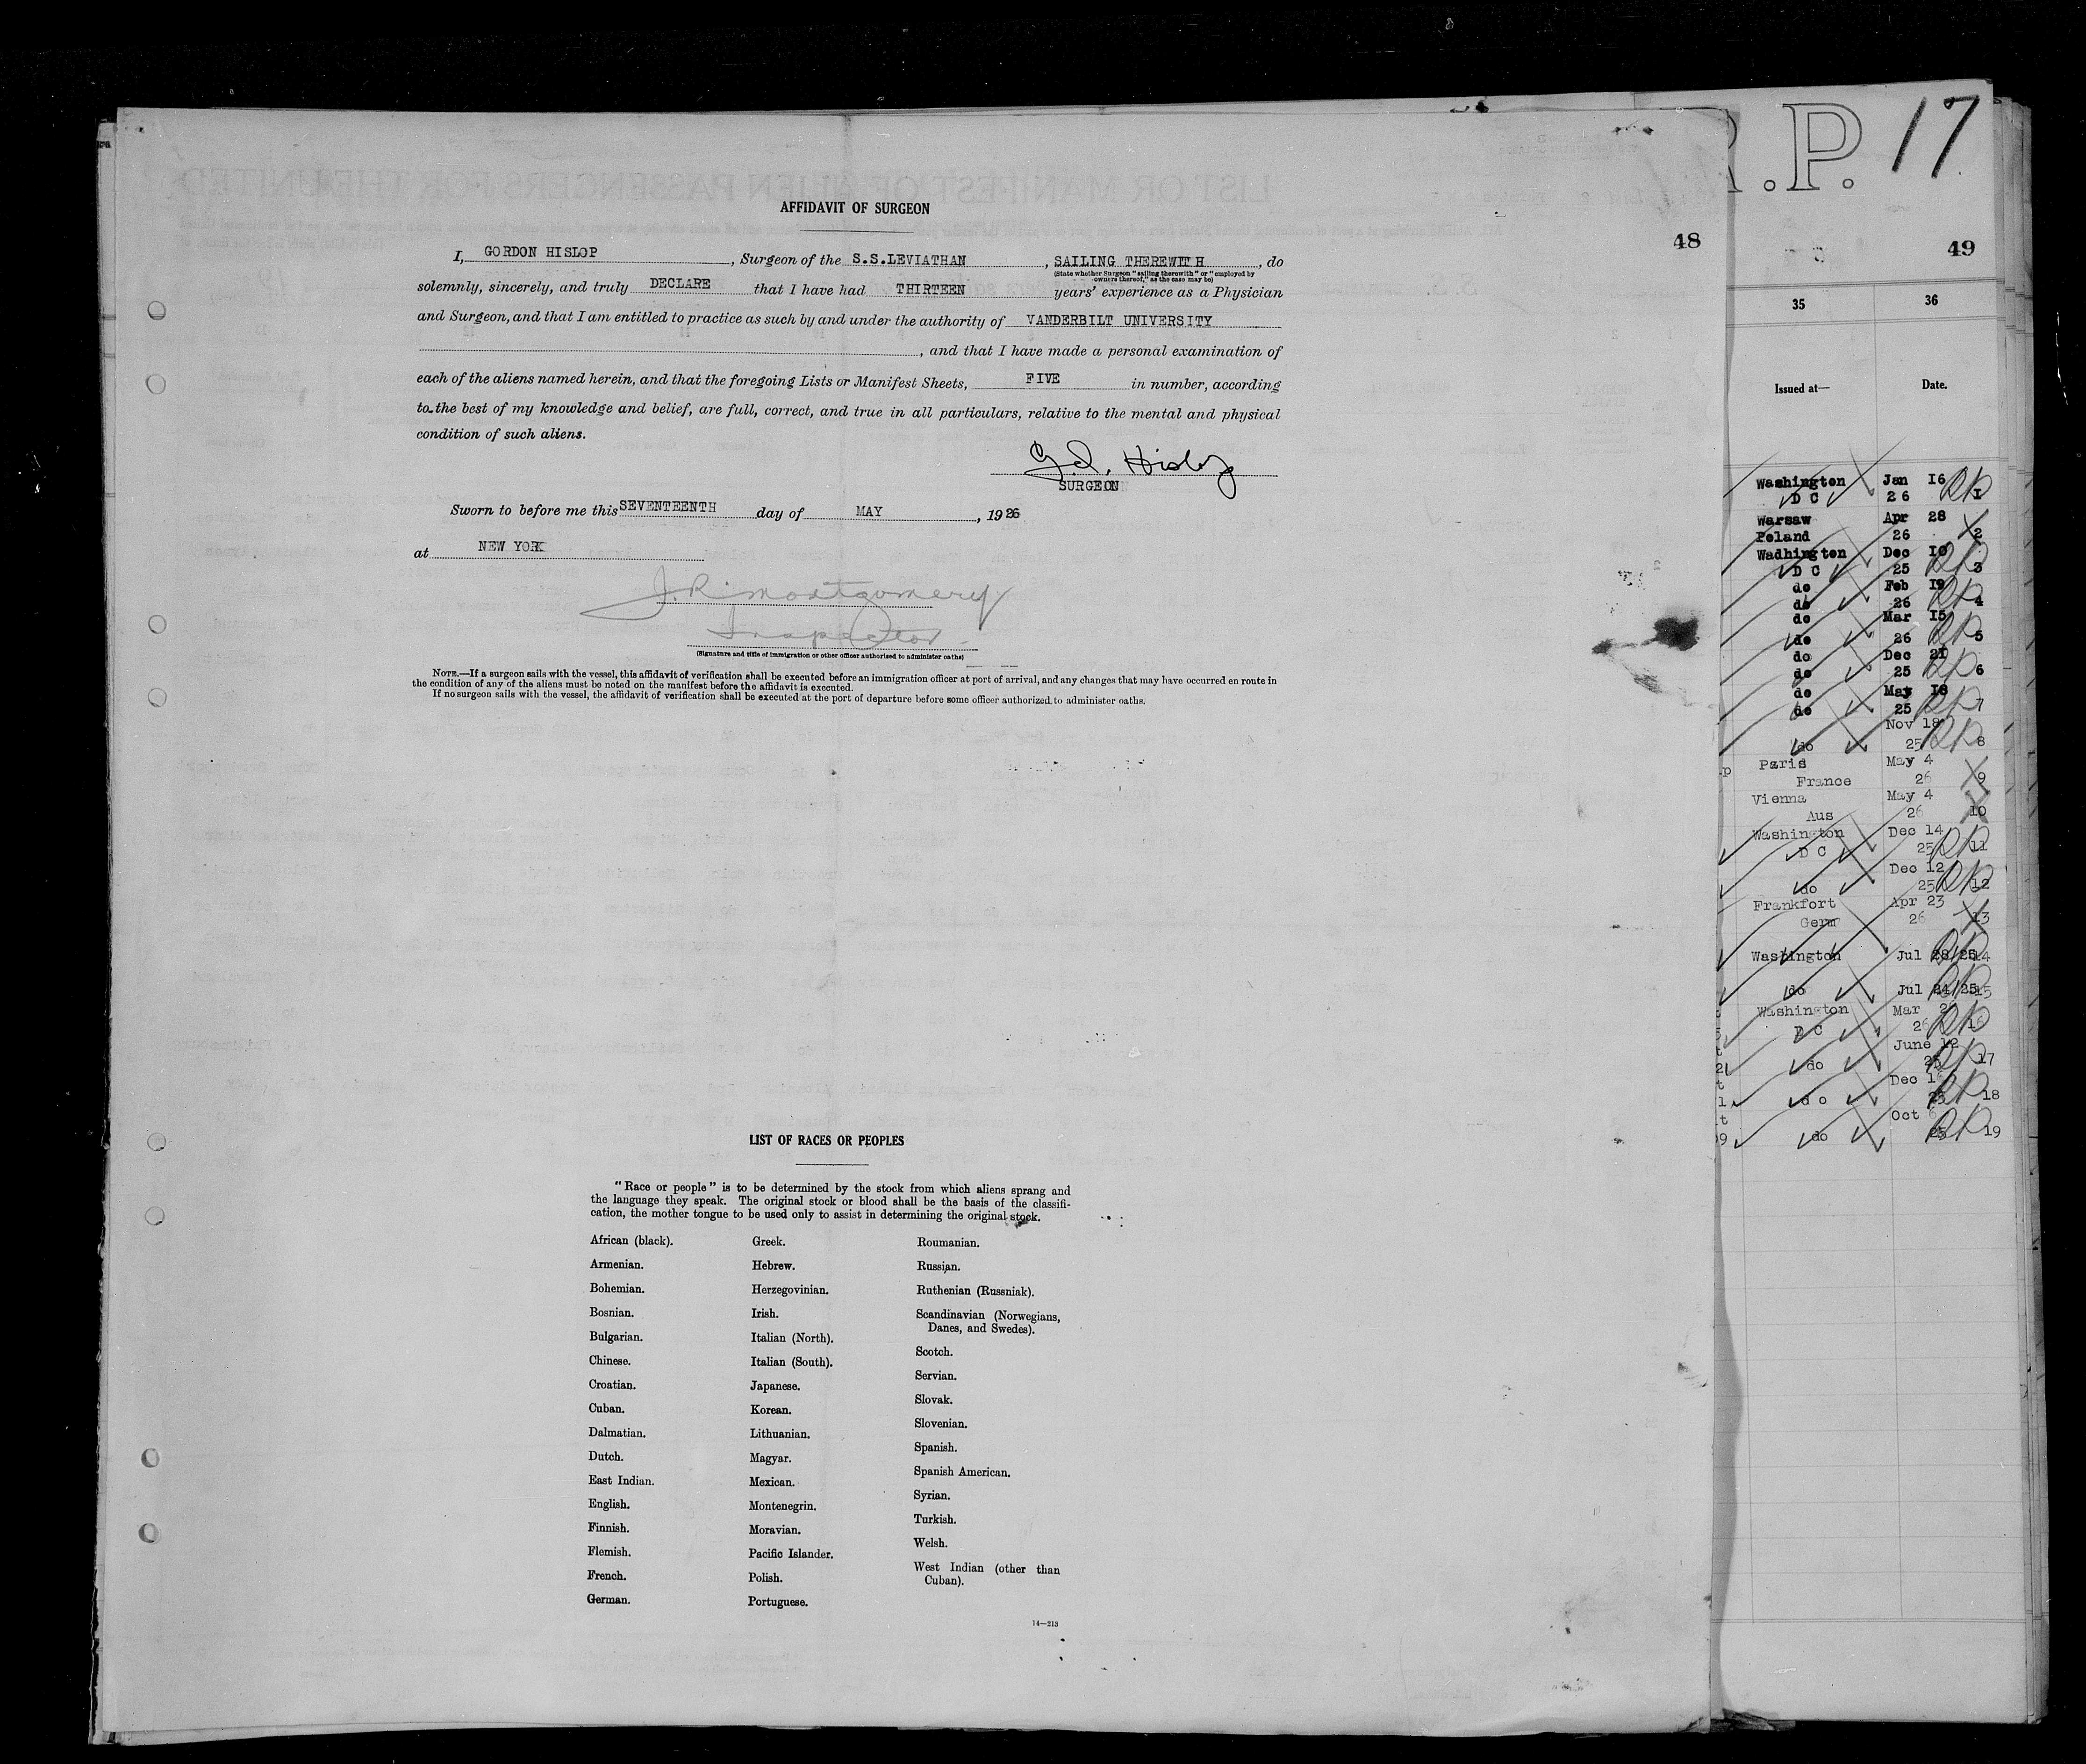 AFFIDAVIT OF SURGEON
48
I, GORDON HISLOP, Surgeon of the S.S.LEVIATHAN, SAILING THEREWITH, do
(State whether Surgeon "sailing therewith" or "employed by
owners thereof," as the case may be)
solemnly, sincerely, and truly DECLARE that I have had THIRTEEN years' experience as a Physician
and Surgeon, and that I am entitled to practice as such by and under the authority of VANDERBILT UNIVERSITY
, and that I have made a personal examination of
each of the aliens named herein, and that the foregoing Lists or Manifest Sheets, FIVE in number, according
to the best of my knowledge and belief, are full, correct, and true in all particulars, relative to the mental and physical
condition of such aliens.
G.d. Hislop
SURGEON
Sworn to before me this SEVENTEENTH day of MAY, 1926
at NEW YORK
J.R. Montgomery
Inspector
(Signature and title of immigration or other officer authorized to administer oaths)
NOTE.—If a surgeon sails with the vessel, this affidavit of verification shall be executed before an immigration officer at port of arrival, and any changes that may have occurred en route in
the condition of any of the aliens must be noted on the manifest before the affidavit is executed.
If no surgeon sails with the vessel, the affidavit of verification shall be executed at the port of departure before some officer authorized to administer oaths.
LIST OF RACES OR PEOPLES
"Race or people" is to be determined by the stock from which aliens sprang and
the language they speak. The original stock or blood shall be the basis of the classifi-
cation, the mother tongue to be used only to assist in determining the original stock.
African (black).
Armenian.
Bohemian.
Bosnian.
Bulgarian.
Chinese.
Croatian.
Cuban.
Dalmatian.
Dutch.
East Indian.
English.
Finnish.
Flemish.
French.
German.
Greek.
Hebrew.
Herzegovinian.
Irish.
Italian (North).
Italian (South).
Japanese.
Korean.
Lithuanian.
Magyar.
Mexican.
Montenegrin.
Moravian.
Pacific Islander.
Polish.
Portuguese.
Roumanian.
Russian.
Ruthenian (Russniak).
Scandinavian (Norwegians,
Danes, and Swedes).
Scotch.
Servian.
Slovak.
Slovenian.
Spanish.
Spanish American.
Syrian.
Turkish.
Welsh.
West Indian (other than
Cuban).
14—213
R.P. 17
49
35 36
Issued at— Date.
Washington Jan 16
D C 26 RP 1
Warsaw Apr 28
Poland 26 2
Wadhington Dec 10
D C 25 RP 3
do Feb 19
do 26 RP 4
do Mar 15
do 26 RP 5
do Dec 21
do 25 RP 6
do May 18
do 25 RP 7
Nov 18
do 25 RP 8
Paris May 4
France 26 9
Vienna May 4
Aus 26 10
Washington Dec 14
D C 25 RP 11
Dec 12
do 25 RP 12
Frankfort Apr 23
Germ 26 13
Washington Jul 28/25 RP 14
do Jul 24/25 RP 15
Washington Mar
D C 26 RP 16
June 12
do 25 RP 17
Dec
do 25 RP 18
Oct 6
do 25 RP 19